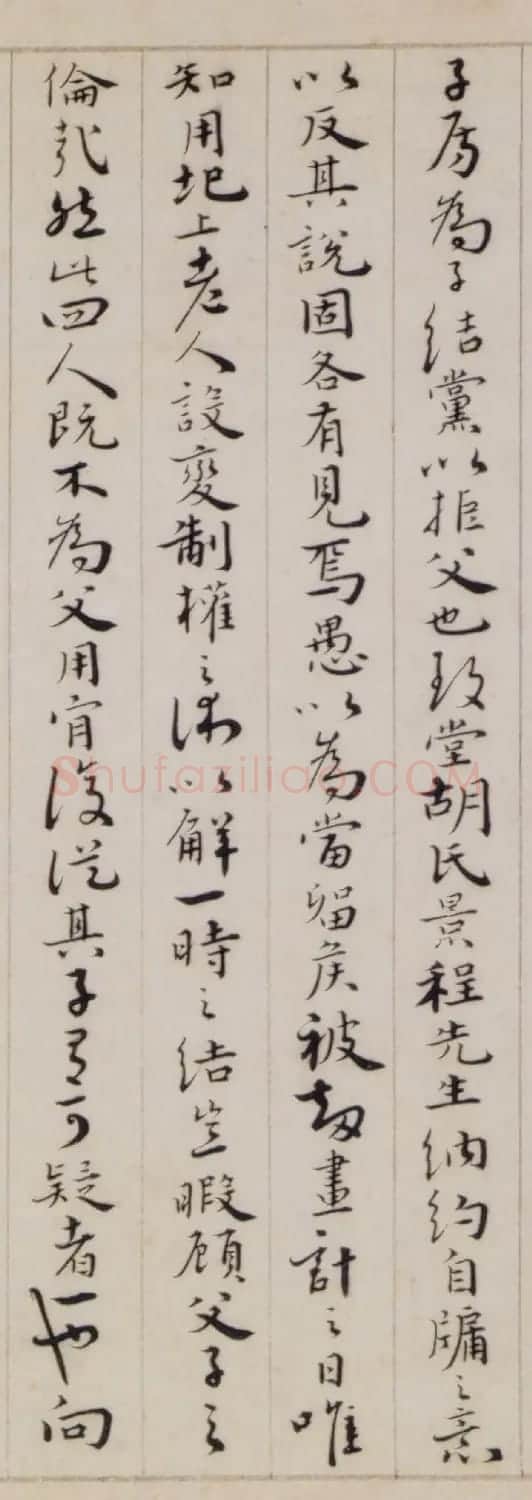 子房為子結黨以拒父也致堂胡氏景程先生納約自牖之意
以反其說固各有見焉愚以為當留侯被劫畫計之日唯
知用圯上老人設變制權之術以解一時之結豈暇顧父子之
倫哉然此四人既不為父用肯復從其子是可疑者一也向
Shufaziliao.COM